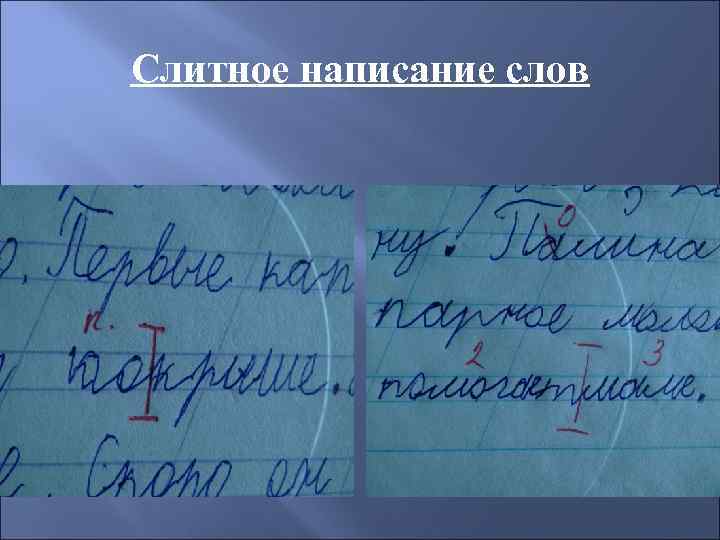 Слитное написание слов
. Первые кап
п.
кокрыше.
. Скоро он
о
ну. Палина
парное моло
2 3
помогатмаме.